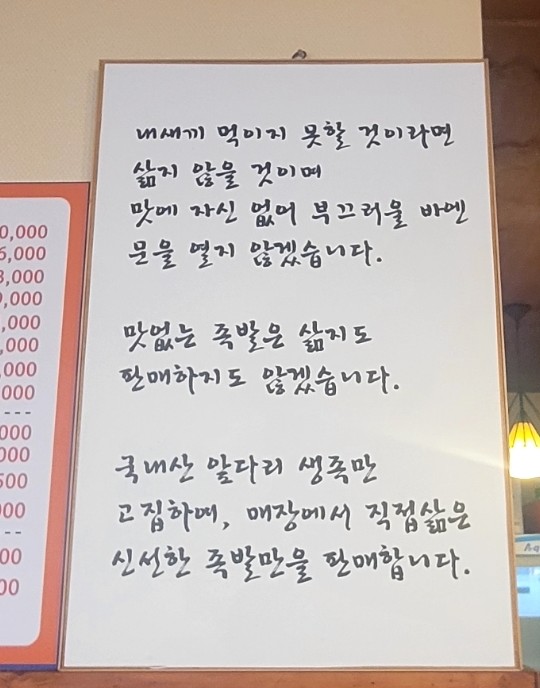 내새끼 먹이지 못할 것이라면
삶지 않을 것이며
맛에 자신 없어 부끄러울 바엔
문을 열지 않겠습니다.
맛없는 족발은 삶지도
판매하지도 않겠습니다.
국내산 앞다리 생족만
고집하며, 매장에서 직접삶은
신선한 족발만을 판매합니다.
0,000
6,000
8,000
,000
,000
,000
,000
,000
---
000
000
500
000
--
00
00